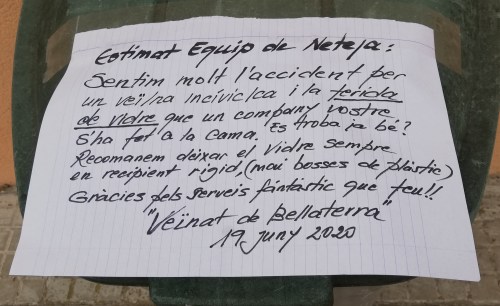 Estimat Equip de Neteja:
Sentim molt l'accident per
un veí/na incívic/ca i la ferida
de vidre que un company vostre
s'ha fet a la cama. Es troba ja bé?
Recomanem deixar el vidre sempre
en recipient rigid, (mai bosses de plàstic)
Gràcies pels serveis fantàstic que feu!!
"Veïnat de Bellaterra"
19 juny 2020